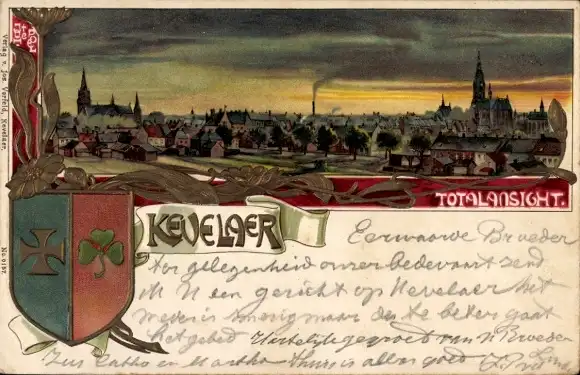 Verlag v. Jos. Verfeld, Kevelaer.
No. 0157.
TOTALANSIGHT.
KEVELAER
Eerwaarde Broeder
ter gelegenheid onzer bedevaart zend
ik U een gezicht op Kevelaer het
weder is maar des te beter gaat
het gebed Hartelijk gegroet van Uw Broeder
Zus en Martha thuis is alles goed